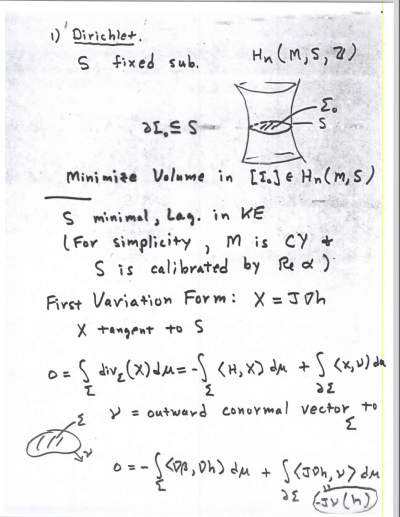 1) Dirichlet.
S fixed sub. Hn (M, S, ℤ)
Σ₀
S
∂Σ₀ ⊆ S
Minimize Volume in [Σ₀] ∈ Hn(M,S)
S minimal, Lag. in KE
(For simplicity, M is CY +
S is calibrated by Re α)
First Variation Form: X = J∇h
X tangent to S
0 = ∫_Σ div_Σ(X)dμ = -∫_Σ ⟨H, X⟩ dμ + ∫_∂Σ ⟨X,ν⟩ dμ
ν = outward conormal vector to Σ
Σ
ν
0 = -∫_Σ ⟨∇β, ∇h⟩ dμ + ∫_∂Σ ⟨J∇h, ν⟩ dμ
-Jν(h)